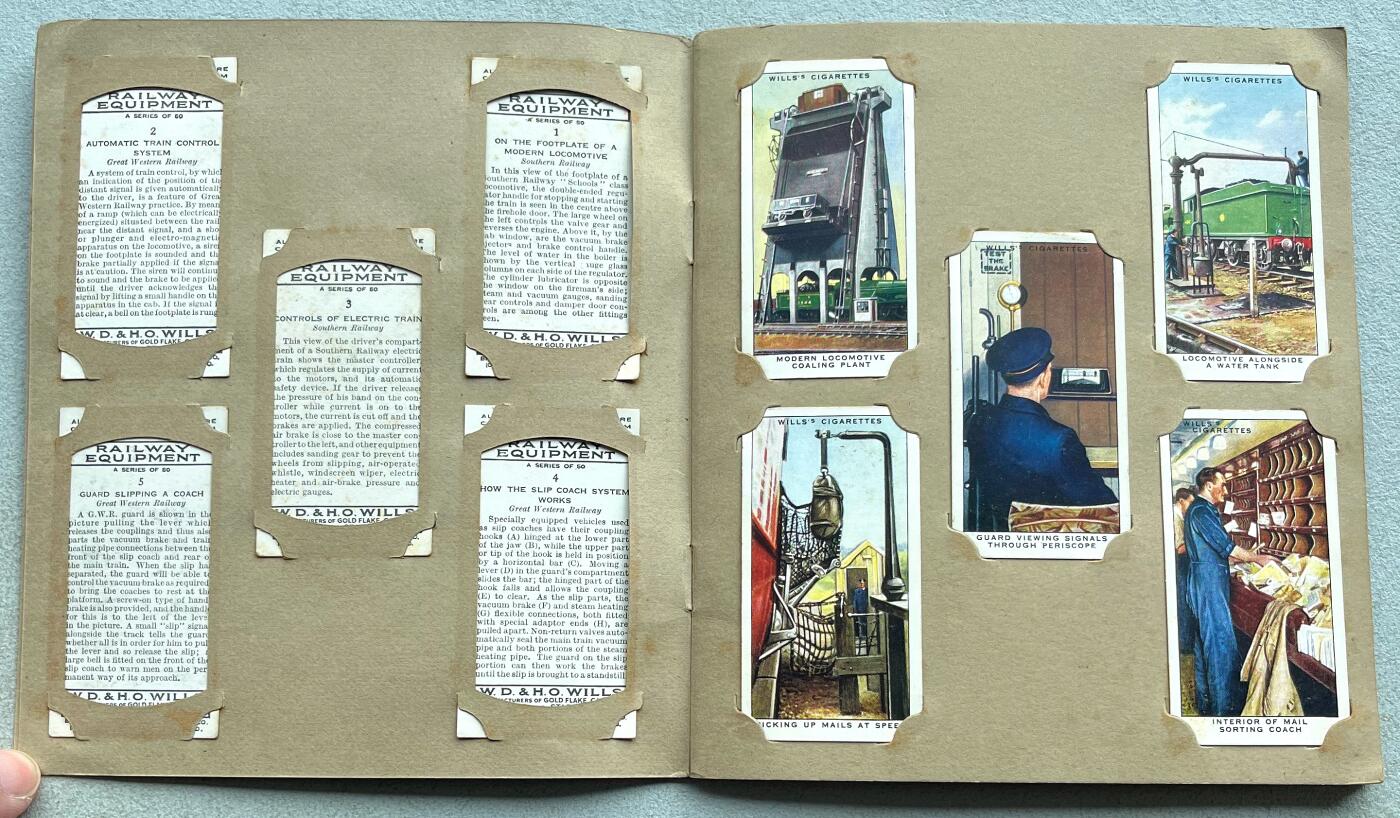 RAILWAY
EQUIPMENT
A SERIES OF 50
2
AUTOMATIC TRAIN CONTROL
SYSTEM
Great Western Railway
A system of train control, by which
an indication of the position of the
distant signal is given automatically
to the driver, is a feature of Great
Western Railway practice. By means
of a ramp (which can be electrically
energized) situated between the rails
near the distant signal, and a shoe
or plunger and electro-magnetic
apparatus on the locomotive, a siren
on the footplate is sounded and the
brake partially applied if the signal
is at caution. The siren will continue
to sound and the brake to be applied
until the driver acknowledges the
signal by lifting a small handle on the
apparatus in the cab. If the signal is
at clear, a bell on the footplate is rung
W.D. & H.O. WILLS
RAILWAY
EQUIPMENT
A SERIES OF 50
1
ON THE FOOTPLATE OF A
MODERN LOCOMOTIVE
Southern Railway
In this view of the footplate of a
Southern Railway "Schools" class
locomotive, the double-ended regu-
lator handle for stopping and starting
the train is seen in the centre above
the firehole door. The large wheel on
the left controls the valve gear and
reverses the engine. Above it, by the
cab window, are the vacuum brake
ejectors and brake control handle.
The level of water in the boiler is
shown by the vertical gauge glass
columns on each side of the regulator.
The cylinder lubricator is opposite
the window on the fireman's side;
steam and vacuum gauges, sanding
gear controls and damper door con-
trols are among the other fittings
seen.
W.D. & H.O. WILLS
MANUFACTURERS OF GOLD FLAKE
RAILWAY
EQUIPMENT
A SERIES OF 50
3
CONTROLS OF ELECTRIC TRAIN
Southern Railway
This view of the driver's compart-
ment of a Southern Railway electric
train shows the master controller
which regulates the supply of current
to the motors, and its automatic
safety device. If the driver releases
the pressure of his hand on the con-
troller while current is on to the
motors, the current is cut off and the
brakes are applied. The compressed
air brake is close to the master con-
troller to the left, and other equipment
includes sanding gear to prevent the
wheels from slipping, air-operated
whistle, windscreen wiper, electric
heater and air-brake pressure and
electric gauges.
W.D. & H.O. WILLS
TURERS OF GOLD FLAKE
RAILWAY
EQUIPMENT
A SERIES OF 50
5
GUARD SLIPPING A COACH
Great Western Railway
A G.W.R. guard is shown in the
picture pulling the lever which
releases the couplings and thus also
parts the vacuum brake and train
heating pipe connections between the
front of the slip coach and rear of
the main train. When the slip has
separated, the guard will be able to
control the vacuum brake as required
to bring the coaches to rest at the
platform. A screw-on type of hand
brake is also provided, and the handle
for this is to the left of the lever
in the picture. A small "slip" signal
alongside the track tells the guard
whether all is in order for him to pull
the lever and so release the slip; a
large bell is fitted on the front of the
slip coach to warn men on the per-
manent way of its approach.
W.D. & H.O. WILLS
RAILWAY
EQUIPMENT
A SERIES OF 50
4
HOW THE SLIP COACH SYSTEM
WORKS
Great Western Railway
Specially equipped vehicles used
as slip coaches have their coupling
hooks (A) hinged at the lower part
of the jaw (B), while the upper part
or tip of the hook is held in position
by a horizontal bar (C). Moving a
lever (D) in the guard's compartment
slides the bar; the hinged part of the
hook falls and allows the coupling
(E) to clear. As the slip parts, the
vacuum brake (F) and steam heating
(G) flexible connections, both fitted
with special adaptor ends (H), are
pulled apart. Non-return valves auto-
matically seal the main train vacuum
pipe and both portions of the steam
heating pipe. The guard on the slip
portion can then work the brakes
until the slip is brought to a standstill.
W.D. & H.O. WILLS
WILLS'S CIGARETTES
MODERN LOCOMOTIVE
COALING PLANT
WILLS'S CIGARETTES
LOCOMOTIVE ALONGSIDE
A WATER TANK
WILLS'S CIGARETTES
TEST
THE
BRAKE
GUARD VIEWING SIGNALS
THROUGH PERISCOPE
WILLS'S CIGARETTES
PICKING UP MAILS AT SPEED
WILLS'S
CIGARETTES
INTERIOR OF MAIL
SORTING COACH